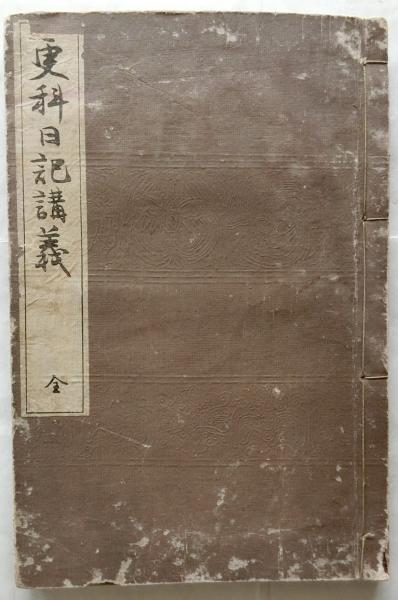 更科日記講義
全